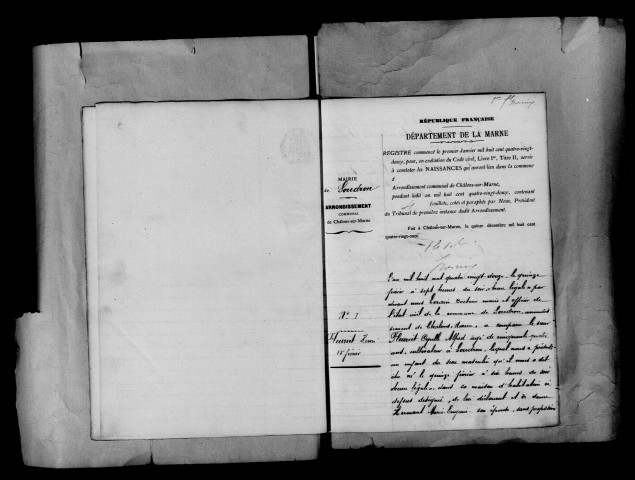 RÉPUBLIQUE FRANÇAISE
DÉPARTEMENT DE LA MARNE
REGISTRE commencé le premier Janvier mil huit cent quatre-vingt-
douze, pour, en exécution du Code civil, Livre Ier, Titre II, servir
à constater les NAISSANCES qui auront lieu dans la commune
d
Arrondissement communal de Châlons-sur-Marne,
pendant ledit an mil huit cent quatre-vingt-douze, contenant
feuillets, cotés et paraphés par Nous, Président
du Tribunal de première instance dudit Arrondissement.
Fait à Châlons-sur-Marne, le quinze décembre mil huit cent
quatre-vingt-onze.
MAIRIE
de Soudron
ARRONDISSEMENT
COMMUNAL
de Châlons-sur-Marne
N° 1
15 février
L'an mil huit cent quatre vingt douze, le quinze
février à sept heures du soir, heure légale, par
devant nous maire et officier de
l'état civil de la commune de Soudron, arrondis
sement de Châlons, Marne, a comparu le sieur
Alfred âgé de cinquante
ans, cultivateur à Soudron, lequel nous a présenté
un enfant du sexe masculin qu'il nous a dit
être né le quinze février à six heures du soir
heure légale, dans sa maison d'habitation ci
dessus désignée, de lui déclarant et de dame
Marie Eugénie son épouse, sans profession